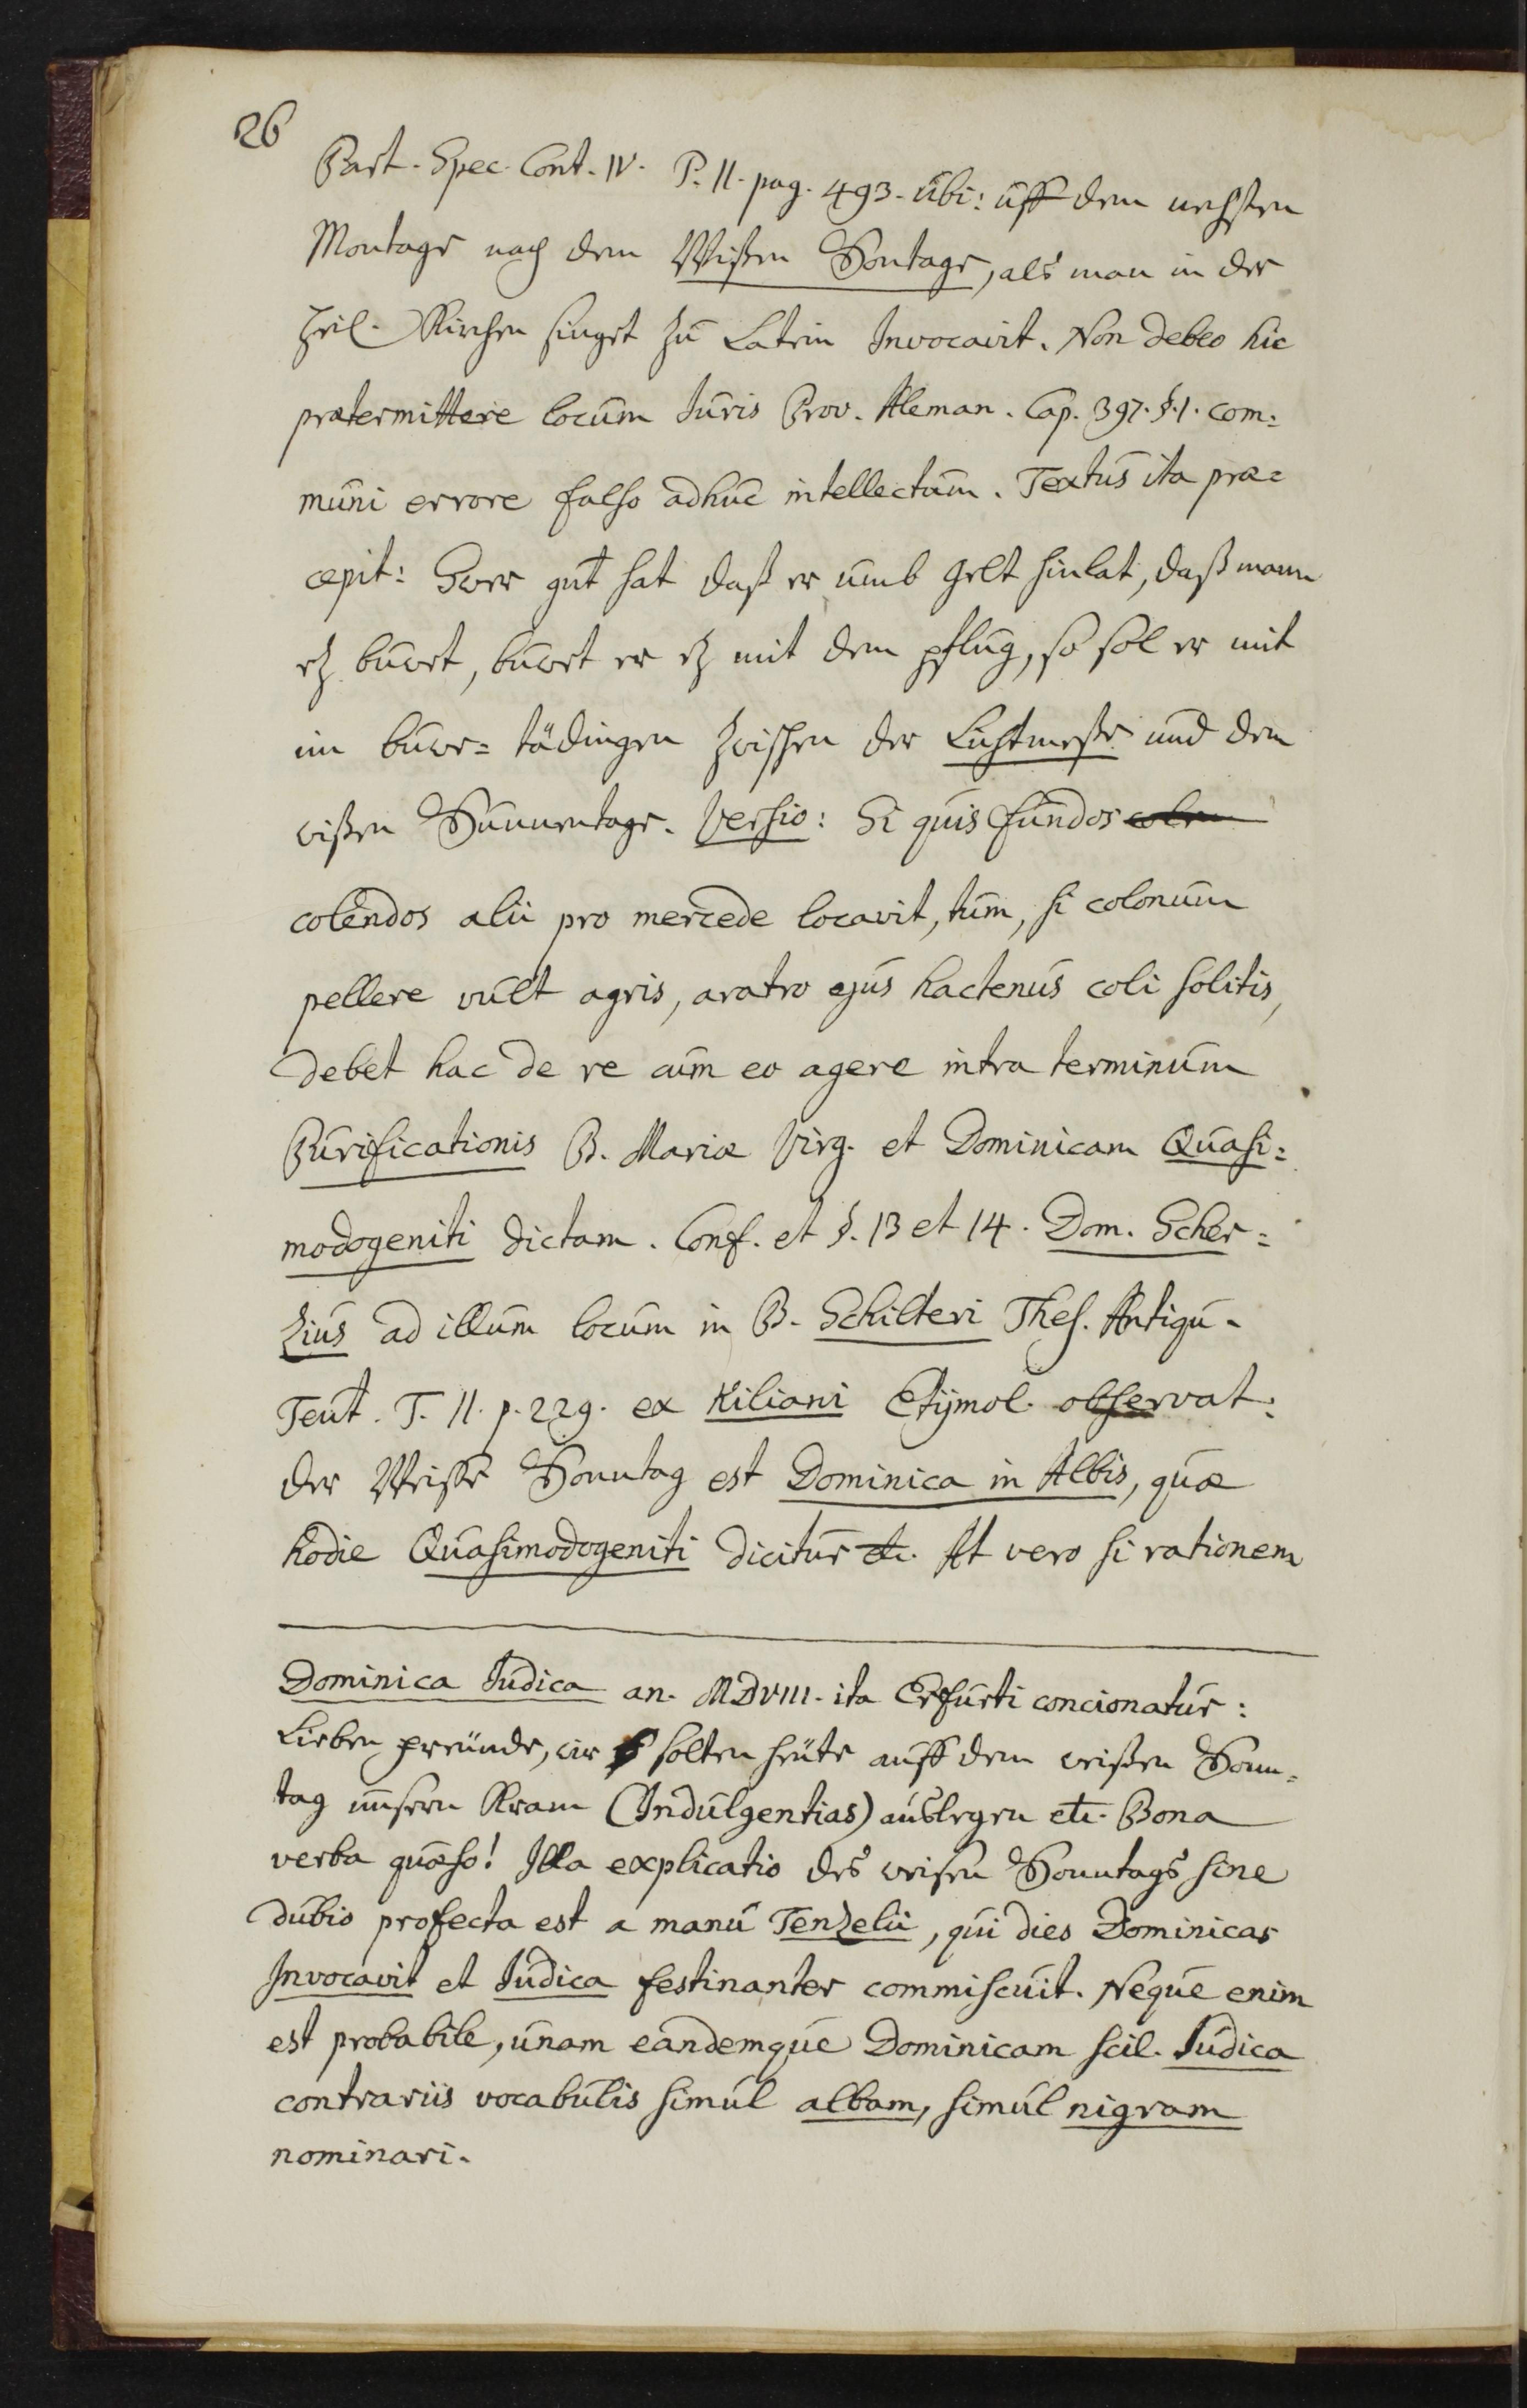 26
Part. Spec. Cont. IV. P. II. pag. 493. ubi: uff dem nehsten
Montage nach dem Wißen Sontage, als man in der
heil. Kirchen singet zu Latein Invocavit. Non debeo hic
prætermittere locum Juris Prov. Aleman. Cap. 397. §. 1. com=
muni errore falso adhuc intellectum. Textus ita præ=
cepit: Swer gut hat daß er umb gelt hinlat, daß mann
ez buwet, buwet er ez mit dem pflug, so sol er mit
im buwe= tädingen zwischen der Lichtmeße und dem
wißen Sunnentage. Versio: Si quis fundos colen
colendos alii pro mercede locavit, tum, si colonum
pellere vult agris, aratro ejus hactenus coli solitis,
debet hac de re cum eo agere intra terminum
Purificationis B. Mariæ Virg. et Dominicam Quasi=
modogeniti dictam. Conf. et §. 13 et 14. Dom. Scher=
zius ad illum locum in B. Schilteri Thes. Antiqu.
Teut. T. II. p. 229. ex Kiliani Etymol. observat:
der Weisse Sonntag est Dominica in Albis, quæ
hodie Quasimodogeniti dicitur etc. At vero si rationem
Dominica Judica an. MDVIII. ita Erfurti concionatur:
Lieben freünde, wir solten heüte auff dem weißen Sonn=
tag unsern Kram (Indulgentias) auslegen etc. Bona
verba quæso! Illa explicatio des weisen Sonntags sine
dubio profecta est a manu Tenzelii, qui dies Dominicas
Invocavit et Judica festinanter commiscuit. Neque enim
est probabile, unam eandemque Dominicam scil. Judica
contrariis vocabulis simul albam, simul nigram
nominari.